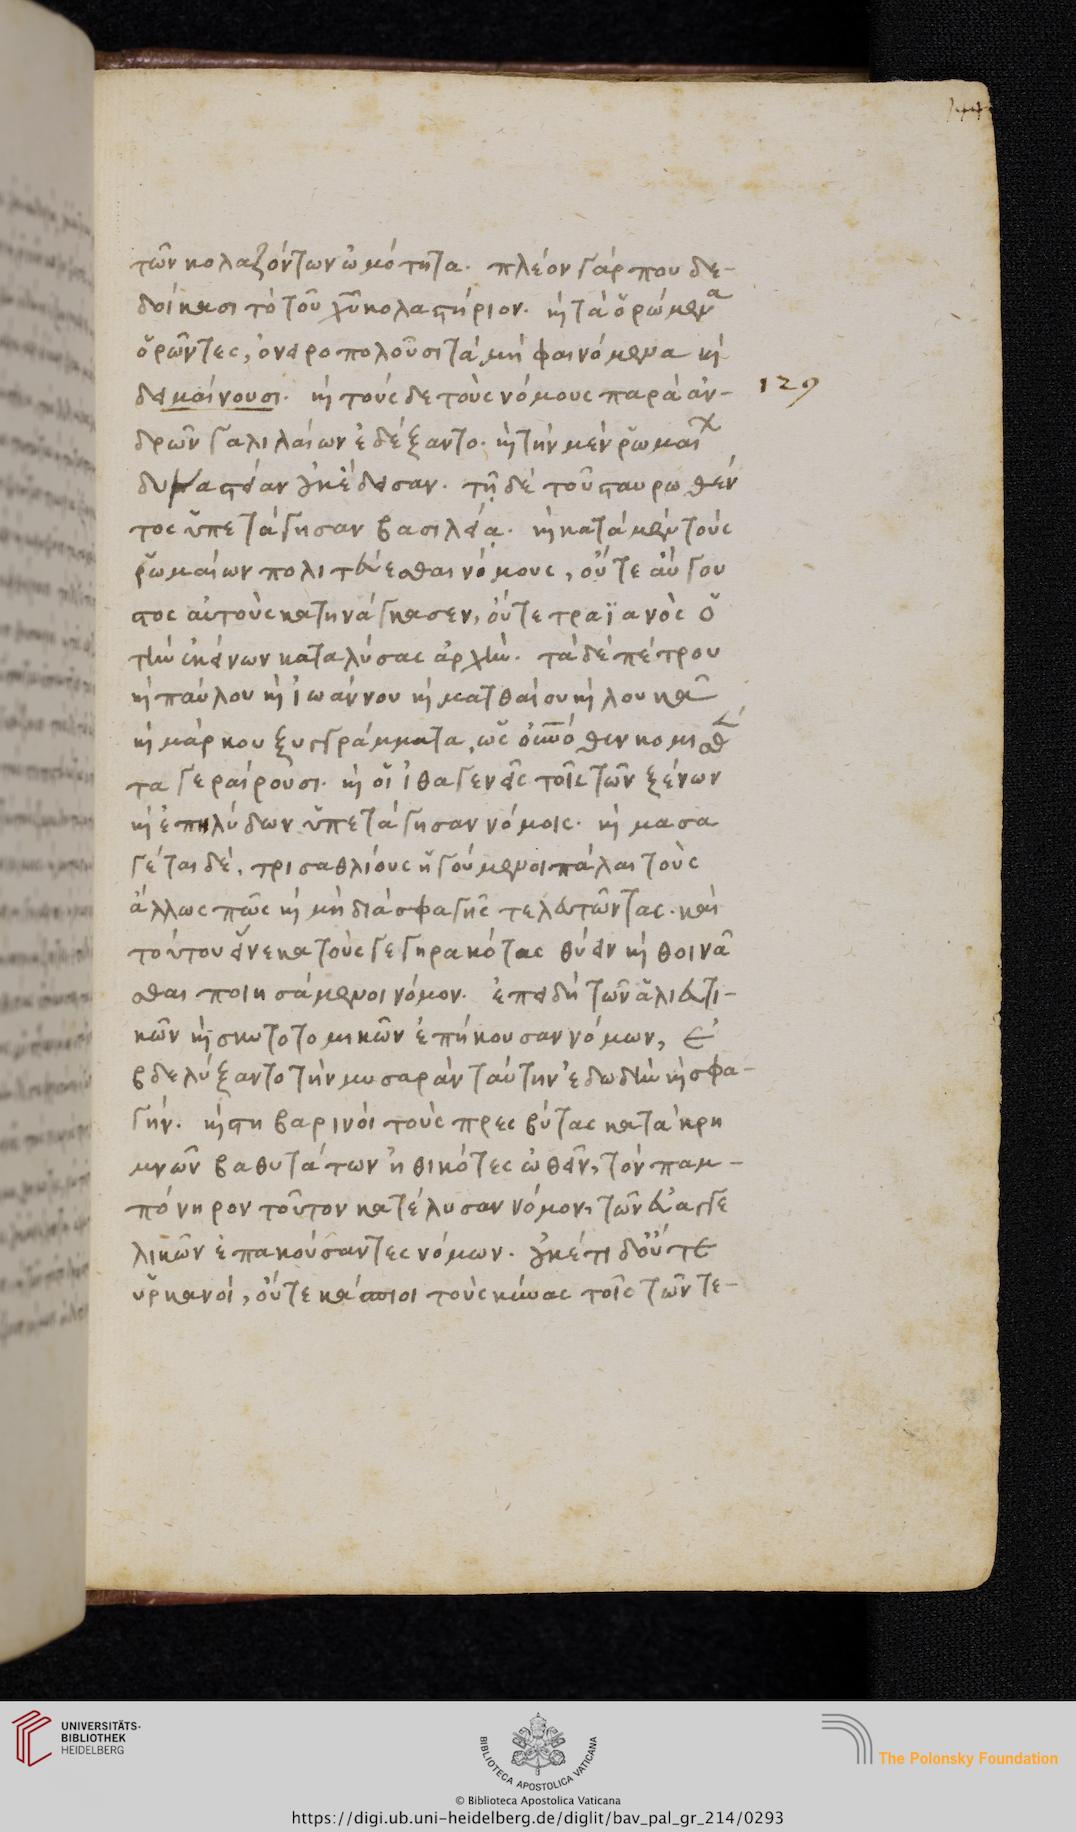 144
τῶν κολαζόντων ὠμότητα. πλέον γάρ που δε-
δοίκασι τὸ τοῦ χυ κολαστήριον. καὶ τὰ ὁρώμενα
ὁρῶντες, ὀνειροπολοῦσι τὰ μὴ φαινόμενα καὶ
δειμαίνουσι. καὶ τούσδε τοὺς νόμους παρὰ ἀν-
129
δρῶν γαλιλαίων ἐδέξαντο. καὶ τὴν μὲν ῥωμαι
δυναστείαν οὐκ ἔδεισαν. τῇ δὲ τοῦ σταυρωθέν
τος ὑπετάγησαν βασιλείᾳ. καὶ κατὰ μὲν τοὺς
ῥωμαίων πολιτεύεσθαι νόμους, οὔτε αὔγου
στος αὐτοὺς κατηνάγκασεν, οὔτε τραϊανὸς ὁ
τὴν ἐκείνων καταλύσας ἀρχήν. τὰ δὲ πέτρου
καὶ παύλου καὶ ἰωάννου καὶ ματθαίου καὶ λουκᾶ
καὶ μάρκου ξυγγράμματα, ὡς οὐνόθεν κομισθέν
τα γεραίρουσι. καὶ οἱ ἰθαγενεῖς τοῖς τῶν ξένων
καὶ ἐπηλύδων ὑπετάγησαν νόμοις. καὶ μασα
γέται δέ, τρισαθλίους ἡγούμενοι πάλαι τοὺς
ἄλλως πως καὶ μὴ διὰ σφαγῆς τελευτῶντας. καὶ
τούτου εἵνεκα τοὺς γεγηρακότας θύειν καὶ θοινᾶ
σθαι ποιησάμενοι νόμον. ἐπειδὴ τῶν ἁλιευτι-
κῶν καὶ σκυτοτομικῶν ἐπήκουσαν νόμων, ἐ
βδελύξαντο τὴν μυσαρὰν ταύτην ἐδωδὴν καὶ σφα-
γήν. καὶ τιβαρινοὶ τοὺς πρεσβύτας κατὰ κρη
μνῶν βαθυτάτων εἰθικότες ὠθεῖν, τὸν παμ-
πόνηρον τοῦτον κατέλυσαν νόμον, τῶν εὐαγγε
λικῶν ἐπακούσαντες νόμων. οὐκέτι δ' οὔτε
ὑρκανοί, οὔτε κάσπιοι τοὺς κύνας τοῖς τῶν τε-
UNIVERSITÄTS-
BIBLIOTHEK
HEIDELBERG
BIBLIOTECA APOSTOLICA VATICANA
The Polonsky Foundation
© Biblioteca Apostolica Vaticana
https://digi.ub.uni-heidelberg.de/diglit/bav_pal_gr_214/0293